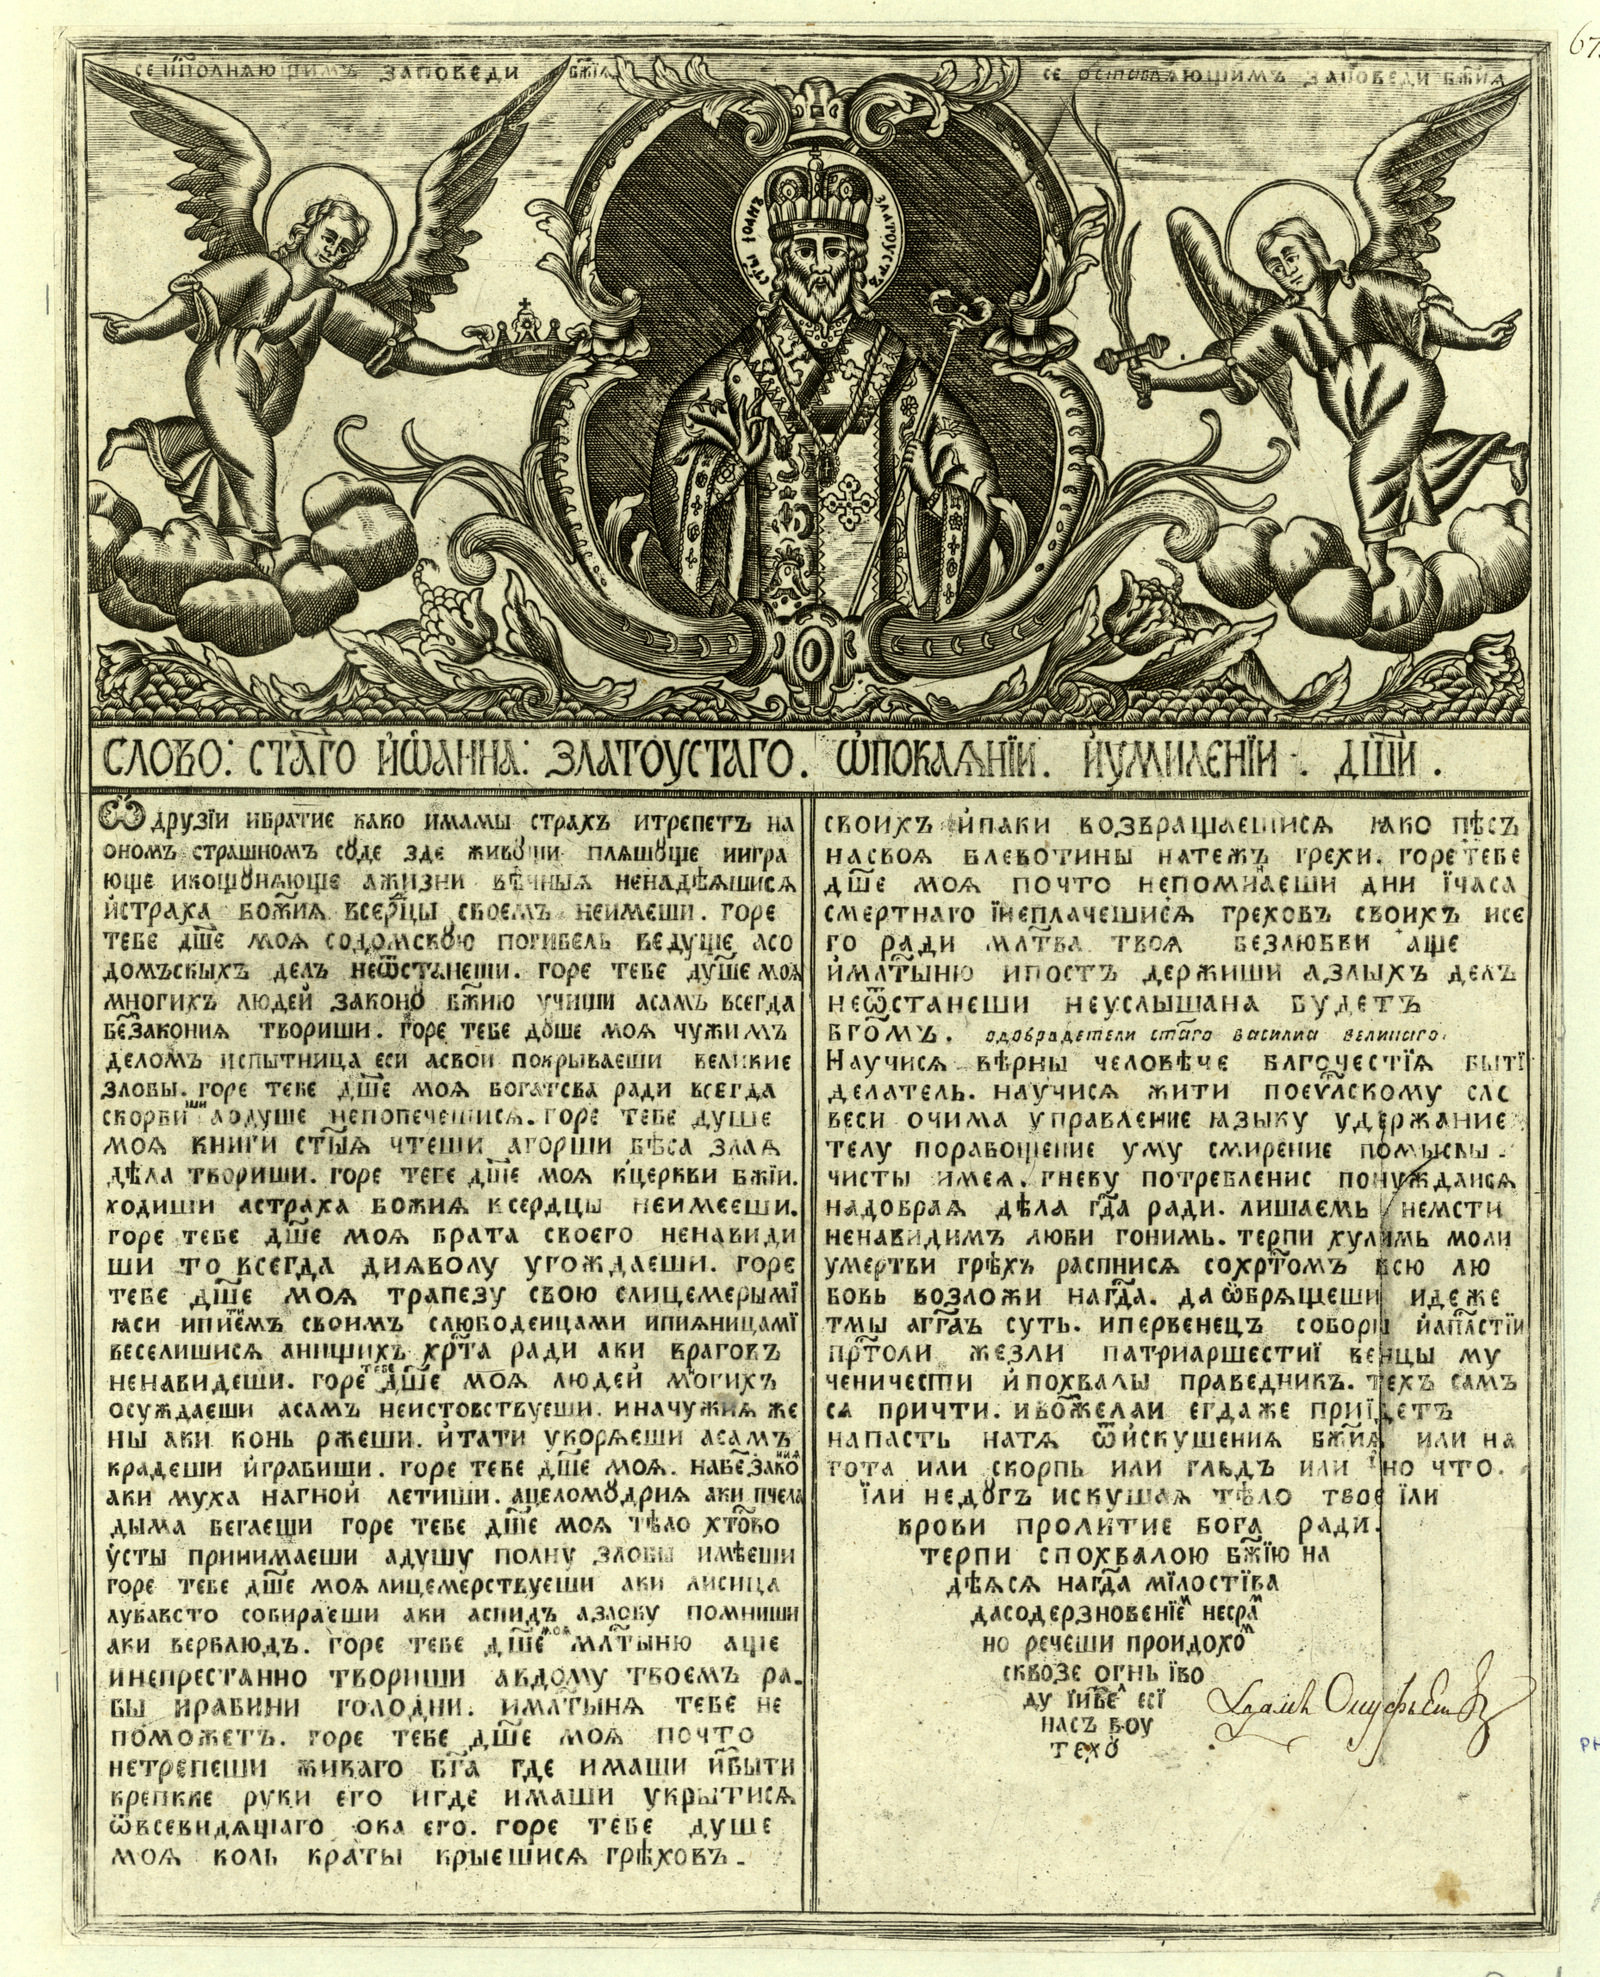 67
СЕ ИСПОЛНЯЮЩИМЪ ЗАПОВЕДИ БЖІЯ
СЕ ОСТАВЛЯЮЩИМЪ ЗАПОВЕДИ БЖИЯ
СТЫ ІОАНЪ ЗЛАТОУСТЪ
СЛОВО: СТАГО ИѠАННА: ЗЛАТОУСТАГО. ѾПОКАѦНІИ. ИУМИЛЕНІИ: ДШИ.
Ѽ ДРУЗІИ ИБРАТИЕ КАКО ИМАМЫ СТРАХЪ ИТРЕПЕТЪ НА
ОНОМЪ СТРАШНОМЪ СꙊДЕ ЗДЕ ЖИВꙊЩИ ПЛЯШꙊЩЕ ИИГРА
ЮЩЕ ИКОЩꙊНѦЮЩЕ АЖИЗНИ ВѢЧНЫѦ НЕНАДѢѦШИСѦ
ИСТРАХА БОЖИѦ ВСЕРЦЫ СВОЕМЪ НЕИМЕШИ. ГОРЕ
ТЕБЕ ДШЕ МОѦ СОДОМСКꙊЮ ПОГИБЕЛЬ ВЕДУЩЕ АСО
ДОМЪСКЫХЪ ДЕЛЪ НЕѾСТАНЕШИ. ГОРЕ ТЕБЕ ДУШЕ МОѦ
МНОГИХЪ ЛЮДЕЙ ЗАКОНꙊ БЖИЮ УЧИШИ АСАМЪ ВСЕГДА
БЕЗАКОНИѦ ТВОРИШИ. ГОРЕ ТЕБЕ ДꙊШЕ МОѦ ЧУЖИМЪ
ДЕЛОМЪ ИСПЫТНИЦА ЕСИ АСВОИ ПОКРЫВАЕШИ ВЕЛИКИЕ
ЗЛОБЫ. ГОРЕ ТЕБЕ ДШЕ МОѦ БОГАТСВА РАДИ ВСЕГДА
СКОРБИШИ АОДУШЕ НЕПОПЕЧЕШИСѦ. ГОРЕ ТЕБЕ ДУШЕ
МОѦ КНИГИ СТЫѦ ЧТЕШИ АГОРШИ БѢСА ЗЛАѦ
ДѢЛА ТВОРИШИ. ГОРЕ ТЕБЕ ДШЕ МОѦ КЦЕРКВИ БЖІИ.
ХОДИШИ АСТРАХА БОЖИѦ ВСЕРДЦЫ НЕИМЕЕШИ.
ГОРЕ ТЕБЕ ДШЕ МОѦ БРАТА СВОЕГО НЕНАВИДИ
ШИ ТО ВСЕГДА ДИѦВОЛУ УГОЖДАЕШИ. ГОРЕ
ТЕБЕ ДШЕ МОѦ ТРАПЕЗУ СВОЮ СЛИЦЕМЕРЫМІ
ѨСИ ИПИЕМЪ СВОИМЪ СЛЮБОДЕИЦАМИ ИПИѦНИЦАМІ
ВЕСЕЛИШИСѦ АНИЩИХЪ ХРТА РАДИ АКИ ВРАГОВЪ
НЕНАВИДЕШИ. ГОРЕ ТЕБЕ ДШЕ МОѦ ЛЮДЕЙ МОГИХЪ
ОСУЖДАЕШИ АСАМЪ НЕИСТОВСТВУЕШИ. ИНАЧУЖИѦ ЖЕ
НЫ АКИ КОНЬ РЖЕШИ. ИТАТИ УКОРѦЕШИ АСАМЪ
КРАДЕШИ ИГРАБИШИ. ГОРЕ ТЕБЕ ДШЕ МОѦ. НАБЕЗАКОНИѦ
АКИ МУХА НАГНОЙ ЛЕТИШИ. АЦЕЛОМꙊДРИѦ АКИ ПЧЕЛА
ДЫМА БЕГАЕШИ ГОРЕ ТЕБЕ ДШЕ МОѦ ТѢЛО ХТОВО
УСТЫ ПРИНИМАЕШИ АДУШУ ПОЛНУ ЗЛОБЫ ИМѢЕШИ
ГОРЕ ТЕБЕ ДШЕ МОѦ ЛИЦЕМЕРСТВУЕШИ АКИ ЛИСИЦА
ЛУКАВСТО СОБИРАЕШИ АКИ АСПИДЪ АЗЛОБУ ПОМНИШИ
АКИ ВЕРБЛЮДЪ. ГОРЕ ТЕБЕ ДШЕ МОѦ МЛТЫНЮ АЩЕ
ИНЕПРЕСТАННО ТВОРИШИ АВДОМУ ТВОЕМЪ РА.
БЫ ИРАБИНИ ГОЛОДНИ. ИМЛТЫНѦ ТЕБЕ НЕ
ПОМОЖЕТЪ. ГОРЕ ТЕБЕ ДШЕ МОѦ ПОЧТО
НЕТРЕПЕШИ ЖИВАГО БГА ГДЕ ИМАШИ ИЗБЫТИ
КРЕПКИЕ РУКИ ЕГО ИГДЕ ИМАШИ УКРЫТИСѦ
ѾВСЕВИДѦЩАГО ОКА ЕГО. ГОРЕ ТЕБЕ ДУШЕ
МОѦ КОЛЬ КРАТЫ КРЫЕШИСѦ ГРѢХОВЪ.
СВОИХЪ ИПАКИ ВОЗВРАЩАЕШИСѦ ѨКО ПѢСЪ
НАСВОѦ БЛЕВОТИНЫ НАТЕЖЪ ГРЕХИ. ГОРЕ ТЕБЕ
ДШЕ МОѦ ПОЧТО НЕПОМНАЕШИ ДНИ ІЧАСА
СМЕРТНАГО ІНЕПЛАЧЕШИСѦ ГРЕХОВЪ СВОИХЪ ИСЕ
ГО РАДИ МЛТВА ТВОѦ БЕЗЛЮБВИ АЩЕ
ИМЛТЫНЮ ИПОСТЪ ДЕРЖИШИ АЗЛЫХЪ ДЕЛЪ
НЕѾСТАНЕШИ НЕУСЛЫШАНА БУДЕТЪ
БГОМЪ. одобрадетели стаго василиа великаго.
НАУЧИСѦ ВѢРНЫ ЧЕЛОВѢЧЕ БЛГОЧЕСТІѦ БЫТІ
ДЕЛАТЕЛЬ. НАУЧИСѦ ЖИТИ ПОЕѴЛСКОМУ СЛС
ВЕСИ ОЧИМА УПРАВЛЕНИЕ ѨЗЫКУ УДЕРЖАНИЕ
ТЕЛУ ПОРАБОЩЕНИЕ УМУ СМИРЕНИЕ ПОМЫСЛЫ.
ЧИСТЫ ИМЕѦ. ГНЕВУ ПОТРЕБЛЕНИС ПОНУЖДАИСѦ
НАДОБРАѦ ДѢЛА ГДА РАДИ. ЛИШАЕМЬ НЕМСТИ
НЕНАВИДИМЪ ЛЮБИ ГОНИМЬ. ТЕРПИ ХУЛИМЬ МОЛИ
УМЕРТВИ ГРѢХЪ РАСПНИСѦ СОХРТОМЪ ВСЮ ЛЮ
БОВЬ ВОЗЛОЖИ НАГДА. ДАѾБРѦЩЕШИ ИДЕЖЕ
ТМЫ АГГЛЪ СУТЬ. ИПЕРВЕНЕЦЪ СОБОРЫ ИАПЛСТІИ
ПРТОЛИ ЖЕЗЛИ ПАТРИАРШЕСТИІ ВЕНЦЫ МУ
ЧЕНИЧЕСТИ ИПОХВАЛЫ ПРАВЕДНИКЪ. ТЕХЪ САМЪ
СѦ ПРИЧТИ. ИВОЖЕЛАИ ЕГДАЖЕ ПРИІДЕТЪ
НАПАСТЬ НАТѦ ѾИСКУШЕНИѦ БЖИѦ ИЛИ НА
ГОТА ИЛИ СКОРПЬ ИЛИ ГЛАДЪ ИЛИ ІНО ЧТО.
ІЛИ НЕДꙊГЪ ИСКУШАѦ ТѢЛО ТВОЕ ІЛИ
КРОВИ ПРОЛИТИЕ БОГА РАДИ.
ТЕРПИ СПОХВАЛОЮ БЖІЮ НА
ДѢѦСѦ НАГДА МІЛОСТІВА
ДАСОДЕРЗНОВЕНІЕМ НЕСРАМ
НО РЕЧЕШИ ПРОИДОХОМ
СКВОЗЕ ОГНЬ ІВО
ДУ ІИВЕЛ ЕСІ
НАСЪ ВОУ
ТЕХꙊ